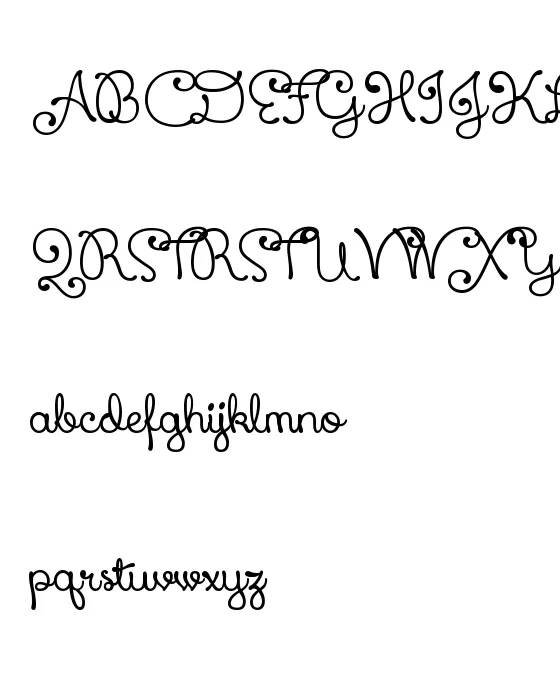 ABCDEFGHIJKL
QRSTRSTUVWXY
abcdefghijklmno
pqrstuvwxyz